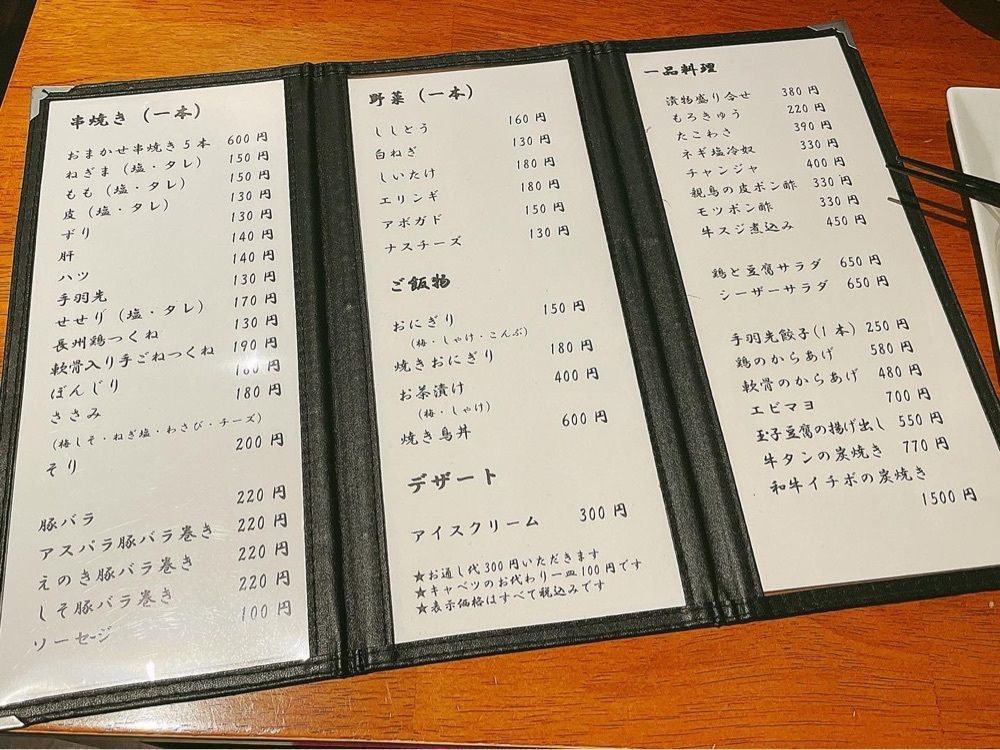 串焼き (一本)
おまかせ串焼き5本 600円
ねぎま (塩・タレ) 150円
もも (塩・タレ) 150円
皮 (塩・タレ) 130円
ずり 130円
肝 140円
ハツ 140円
手羽先 130円
せせり (塩・タレ) 170円
長州鶏つくね 130円
軟骨入り手ごねつくね 190円
ぼんじり 円
ささみ 180円
(梅しそ・ねぎ塩・わさび・チーズ)
そり 200円
豚バラ 220円
アスパラ豚バラ巻き 220円
えのき豚バラ巻き 220円
しそ豚バラ巻き 220円
ソーセージ 100円
野菜 (一本)
ししとう 160円
白ねぎ 130円
しいたけ 180円
エリンギ 180円
アボガド 150円
ナスチーズ 130円
ご飯物
おにぎり 150円
(梅・しゃけ・こんぶ)
焼きおにぎり 180円
お茶漬け 400円
(梅・しゃけ)
焼き鳥丼 600円
デザート
アイスクリーム 300円
★お通し代300円いただきます
★キャベツのお代わり一皿100円です
★表示価格はすべて税込みです
一品料理
漬物盛り合せ 380円
もろきゅう 220円
たこわさ 390円
ネギ塩冷奴 330円
チャンジャ 400円
親鳥の皮ポン酢 330円
モツポン酢 330円
牛スジ煮込み 450円
鶏と豆腐サラダ 650円
シーザーサラダ 650円
手羽先餃子(1本) 250円
鶏のからあげ 580円
軟骨のからあげ 480円
エビマヨ 700円
玉子豆腐の揚げ出し 550円
牛タンの炭焼き 770円
和牛イチボの炭焼き
1500円